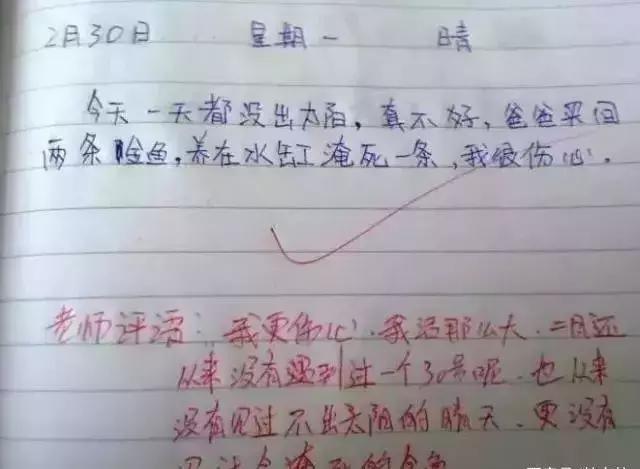 2月30日 星期一 晴
今天一天都没出太阳，真不好，爸爸买回
两条金鱼，养在水缸淹死一条，我很伤心。
老师评语：我更伤心，我活那么大，二月还
从来没有遇到过一个30号呢，也从来
没有见过不出太阳的晴天，更没有
见过会淹死的金鱼